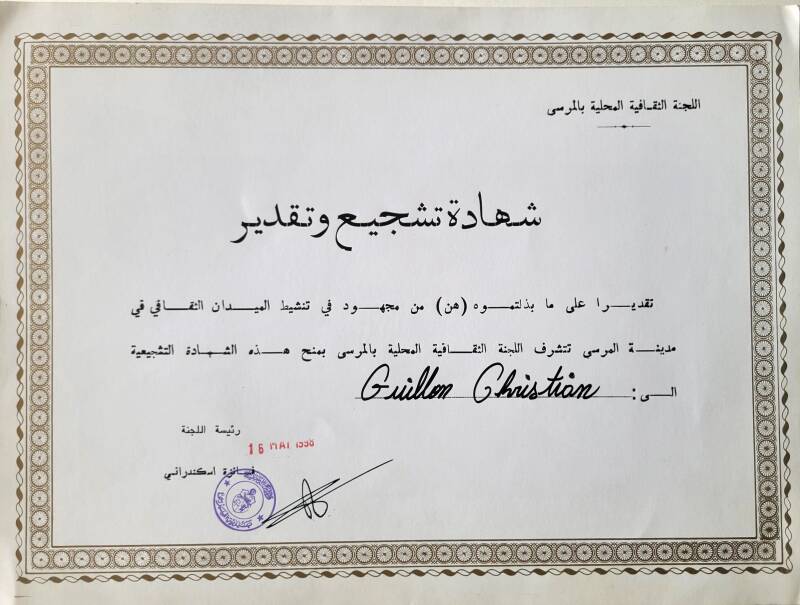 اللجنة الثقافية المحلية بالمرسى
شهادة تشجيع وتقدير
تقديرا على ما بذلتموه (هن) من مجهود في تنشيط الميدان الثقافي في
مدينة المرسى تتشرف اللجنة الثقافية المحلية بالمرسى بمنح هذه الشهادة التشجيعية
الى: Guillon Christian
رئيسة اللجنة
16 MAI 1998
فائزة اسكندراني